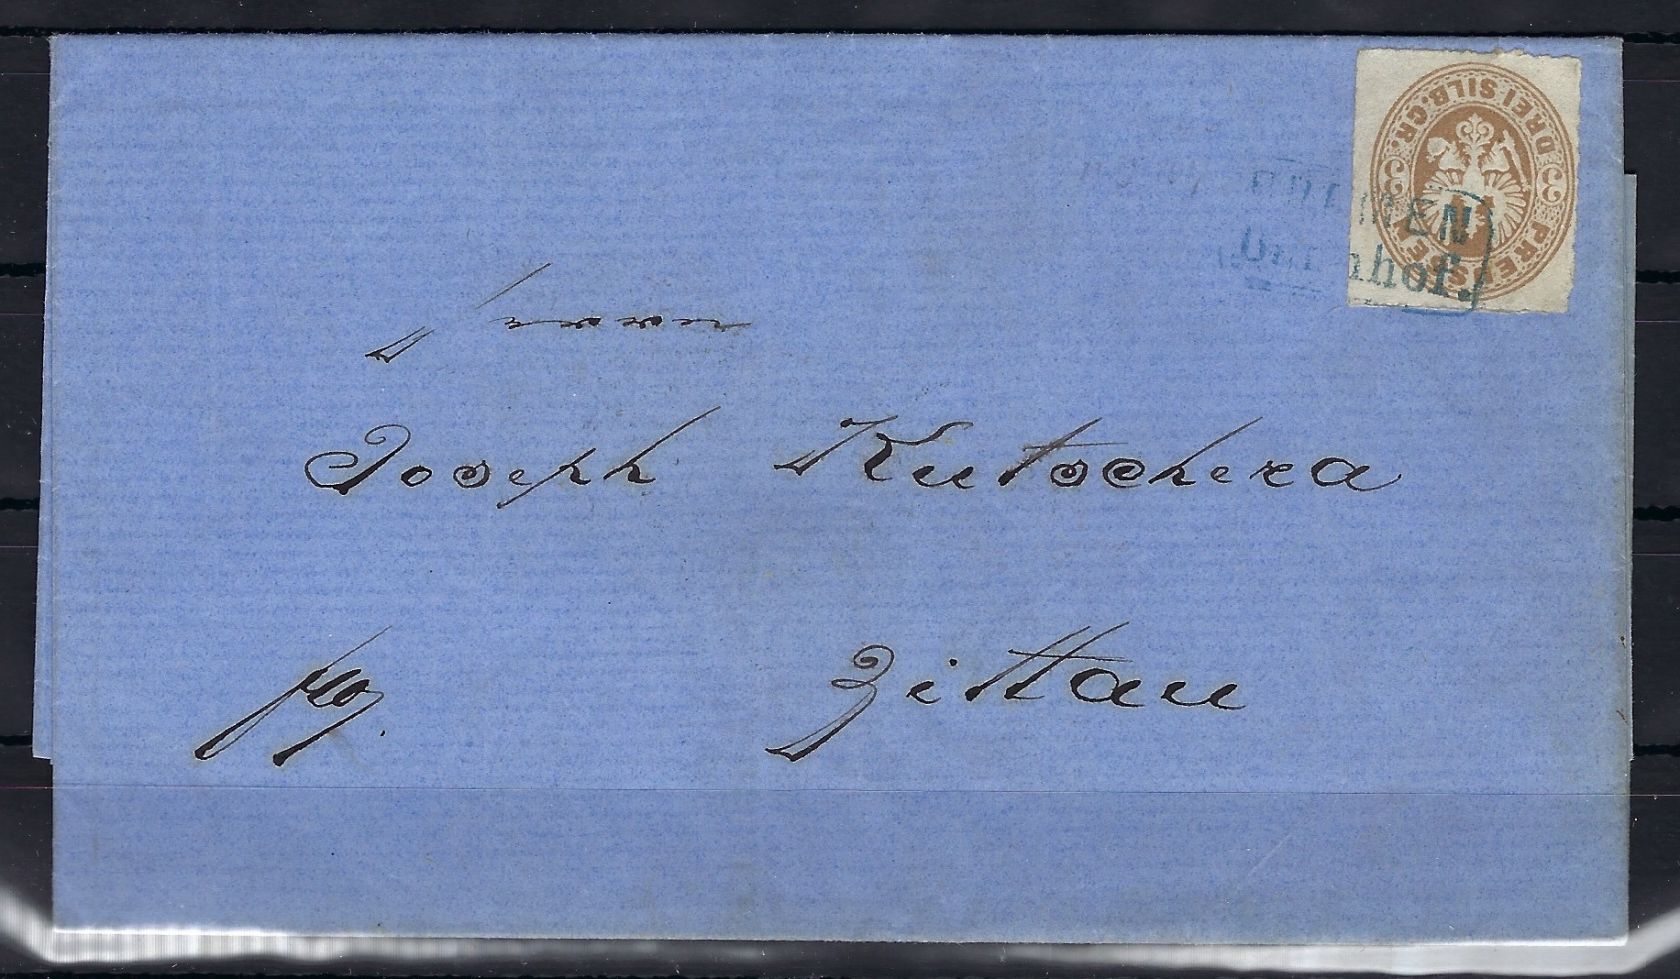 PREUSSEN DREI SILB. GR.
3 3
Bahnhof.
Herrn
Joseph Kutschera
Zittau